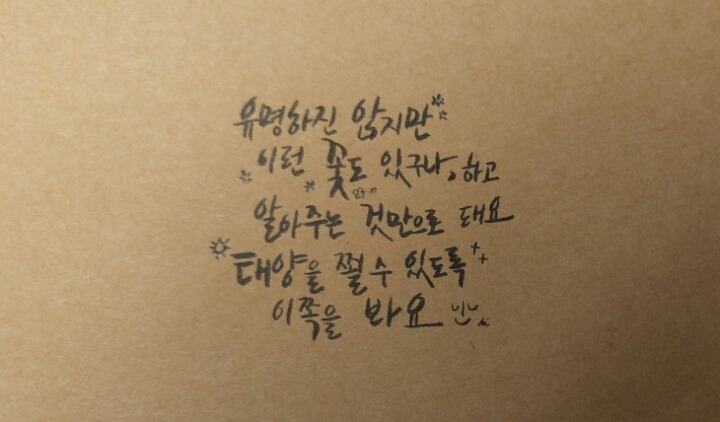 유명하진 않지만
이런 꽃도 있구나, 하고
알아주는 것만으로 돼요
태양을 쬘 수 있도록
이쪽을 봐요